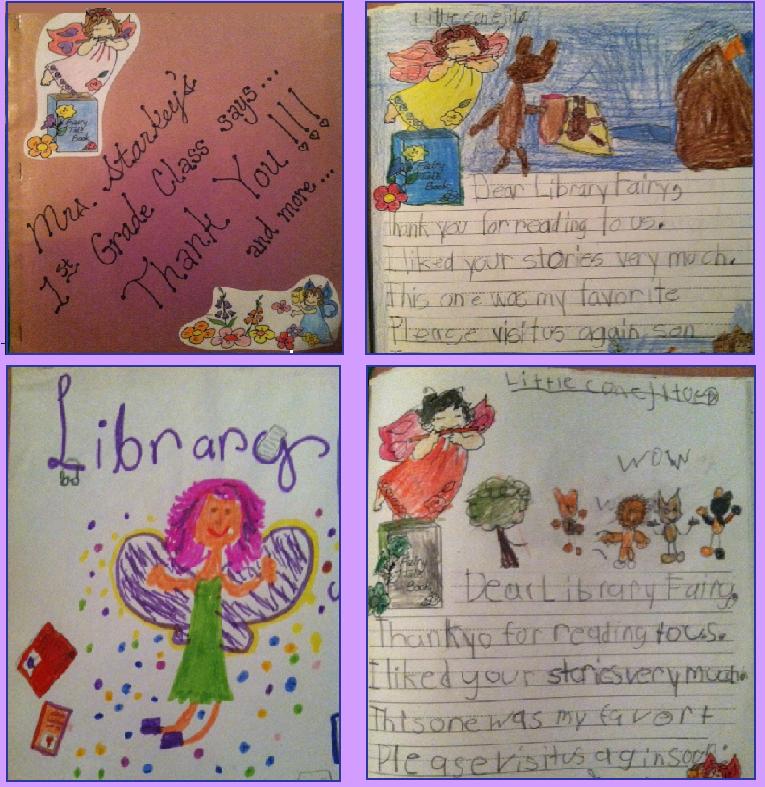 Fairy
Tale
Book
Mrs. Starkey's
1st Grade Class says...
Thank You!!!
and more...
Little conejito
Fairy
Tale
Book
Dear Library Fairy,
Thank you for reading to us.
I liked your stories very much.
This one was my favorite
Please visit us again son
Library
Little conejitoes
WOW
Fairy
Tale
Book
Dear Library Fairy,
Thank yo for reading to us.
I liked your stories very much.
This one was my favort
Please visit us agin soon